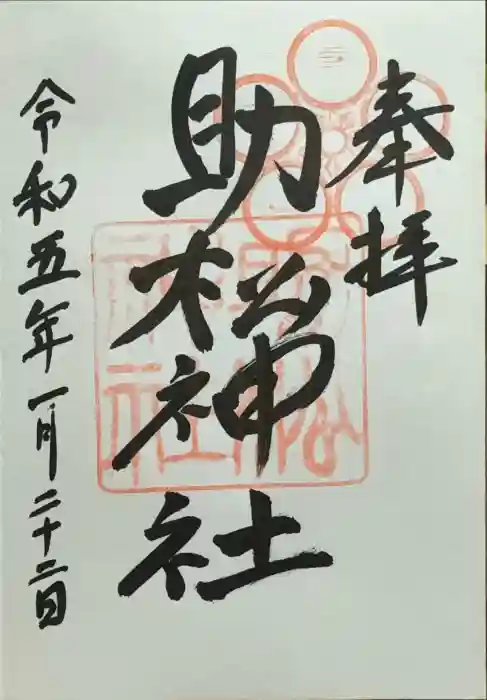 奉拝
助松神社
令和五年一月二十二日
助松神社